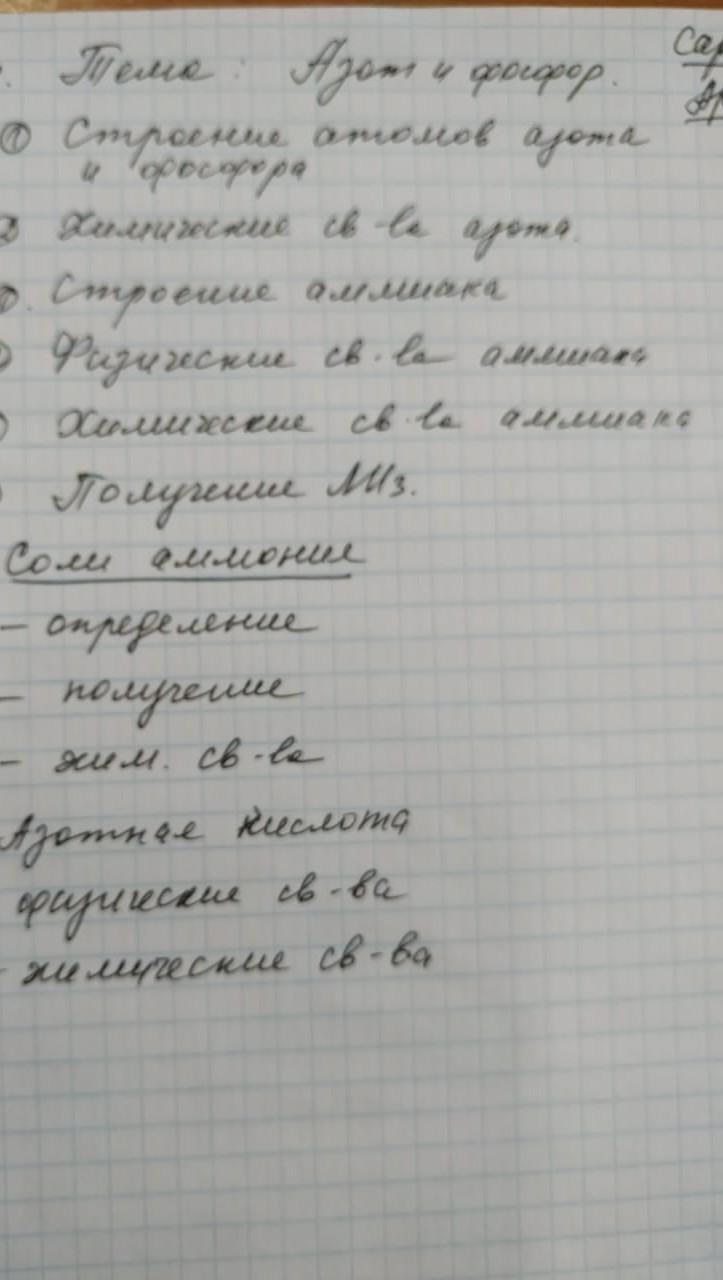 Тема: Азот и фосфор.
Сар
Ар
① Строение атомов азота
и фосфора
② Химические св-ва азота.
Строение аммиака
Физические св-ва аммиака
Химические св-ва аммиака
Получение NH3.
Соли аммония
– определение
– получение
– хим. св-ва
Азотная кислота
физические св-ва
- химические св-ва